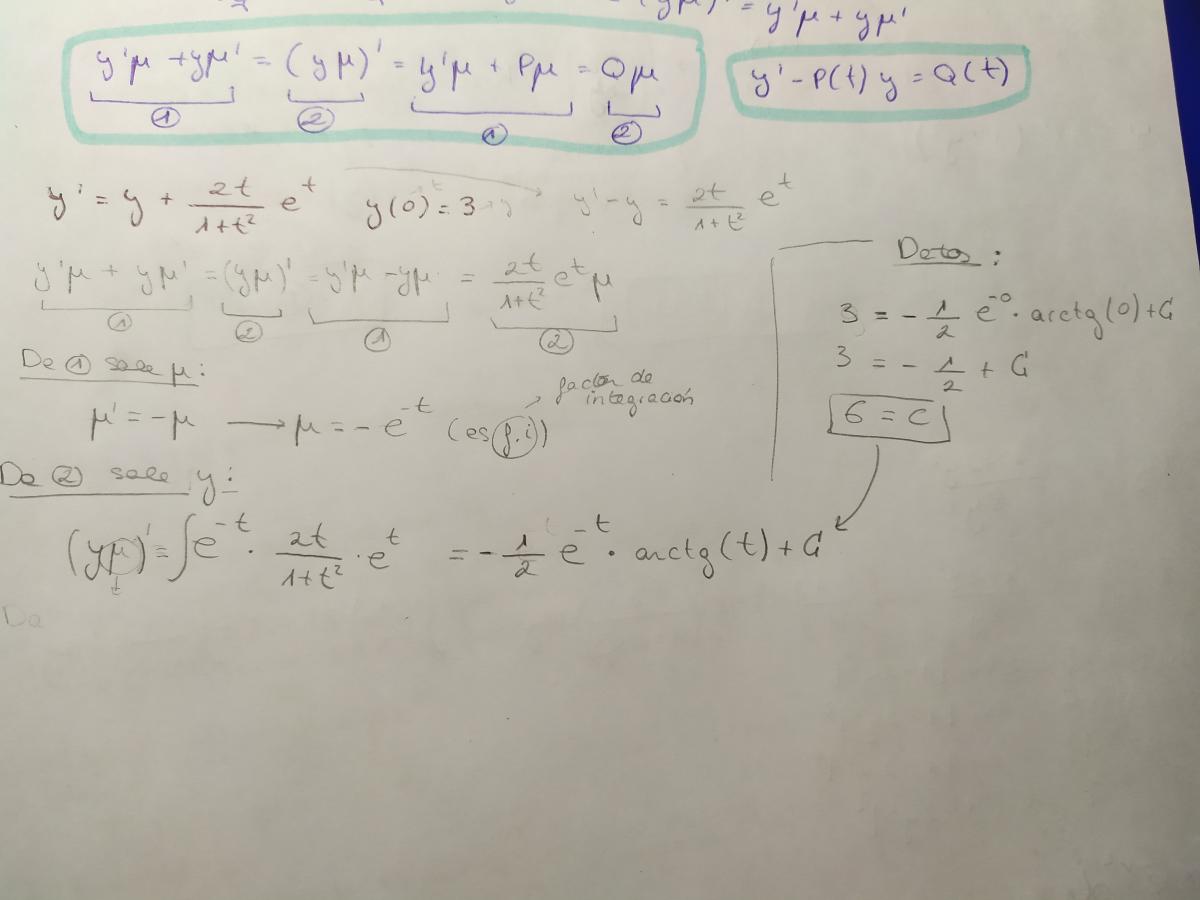 (yμ)' = y'μ + yμ'
y'μ + yμ' = (yμ)' = y'μ + Pμ = Qμ
① ② ① ②
y' - P(t) y = Q(t)
y' = y + 2t/(1+t²) e^t y(0) = 3 y' - y = 2t/(1+t²) e^t
y'μ + yμ' = (yμ)' = y'μ - yμ = 2t/(1+t²) e^t μ
① ② ① ②
De ① sale μ:
μ' = -μ → μ = -e^-t (es f.i)
factor de
integración
De ② sale y:
(yμ)' = ∫ e^-t · 2t/(1+t²) · e^t = -1/2 e^-t · arctg(t) + C
De
Datos:
3 = -1/2 e^-0 · arctg(0) + C
3 = -1/2 + C
6 = C